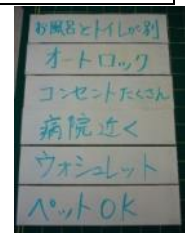 お風呂とトイレが別
オートロック
コンセントたくさん
病院近く
ウォシュレット
ペットOK